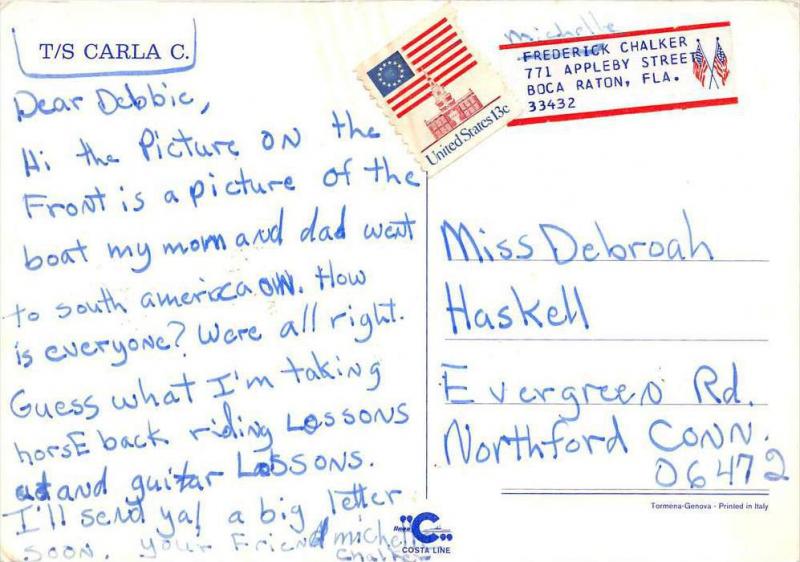 T/S CARLA C.
Dear Debbie,
Hi the Picture ON the
Front is a picture of the
boat my mom and dad went
to south america on. How
is everyone? Were all right.
Guess what I'm taking
horsE back riding LessoNs
and guitar LessoNs.
I'll send ya! a big letter
soon. your Friend michelle
Chalker
United States 13c
michelle
FREDERICK CHALKER
771 APPLEBY STREET
BOCA RATON, FLA.
33432
Miss Debroah
Haskell
Evergreen Rd.
Northford CONN.
06472
Tormena-Genova - Printed in Italy
linea C
COSTA LINE